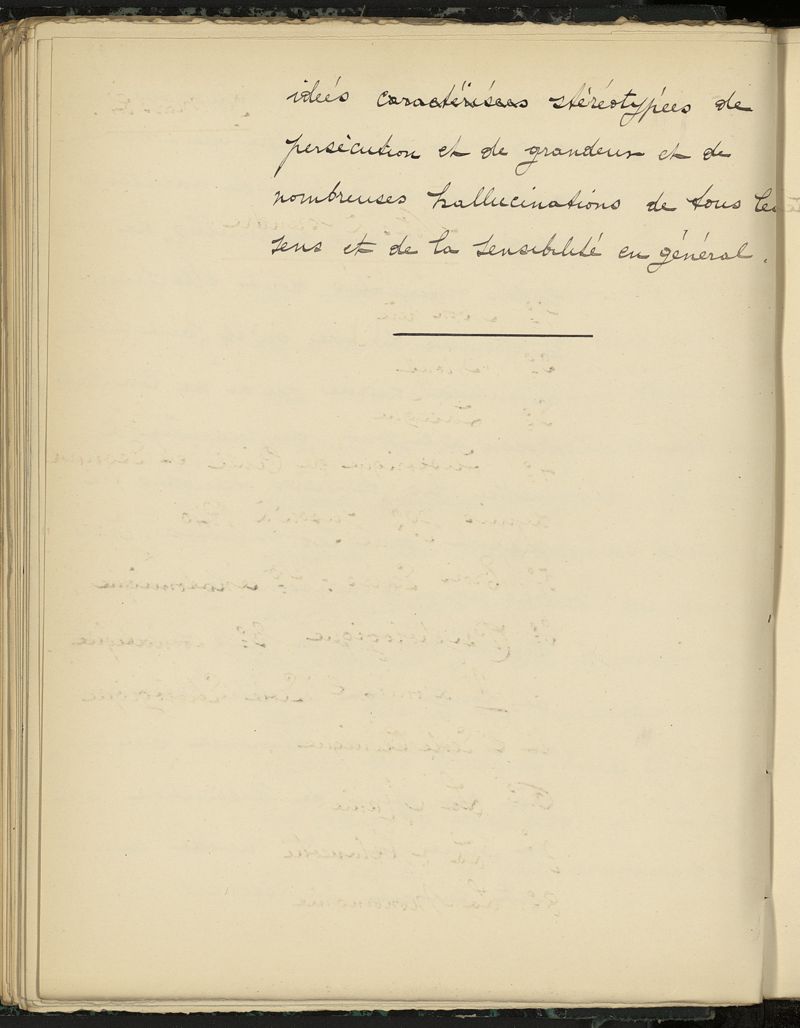 ideés caractérisées stéréotypées de
persécution et de grandeur et de
nombreuses hallucinations de tous les
sens et de la sensibilité en général.